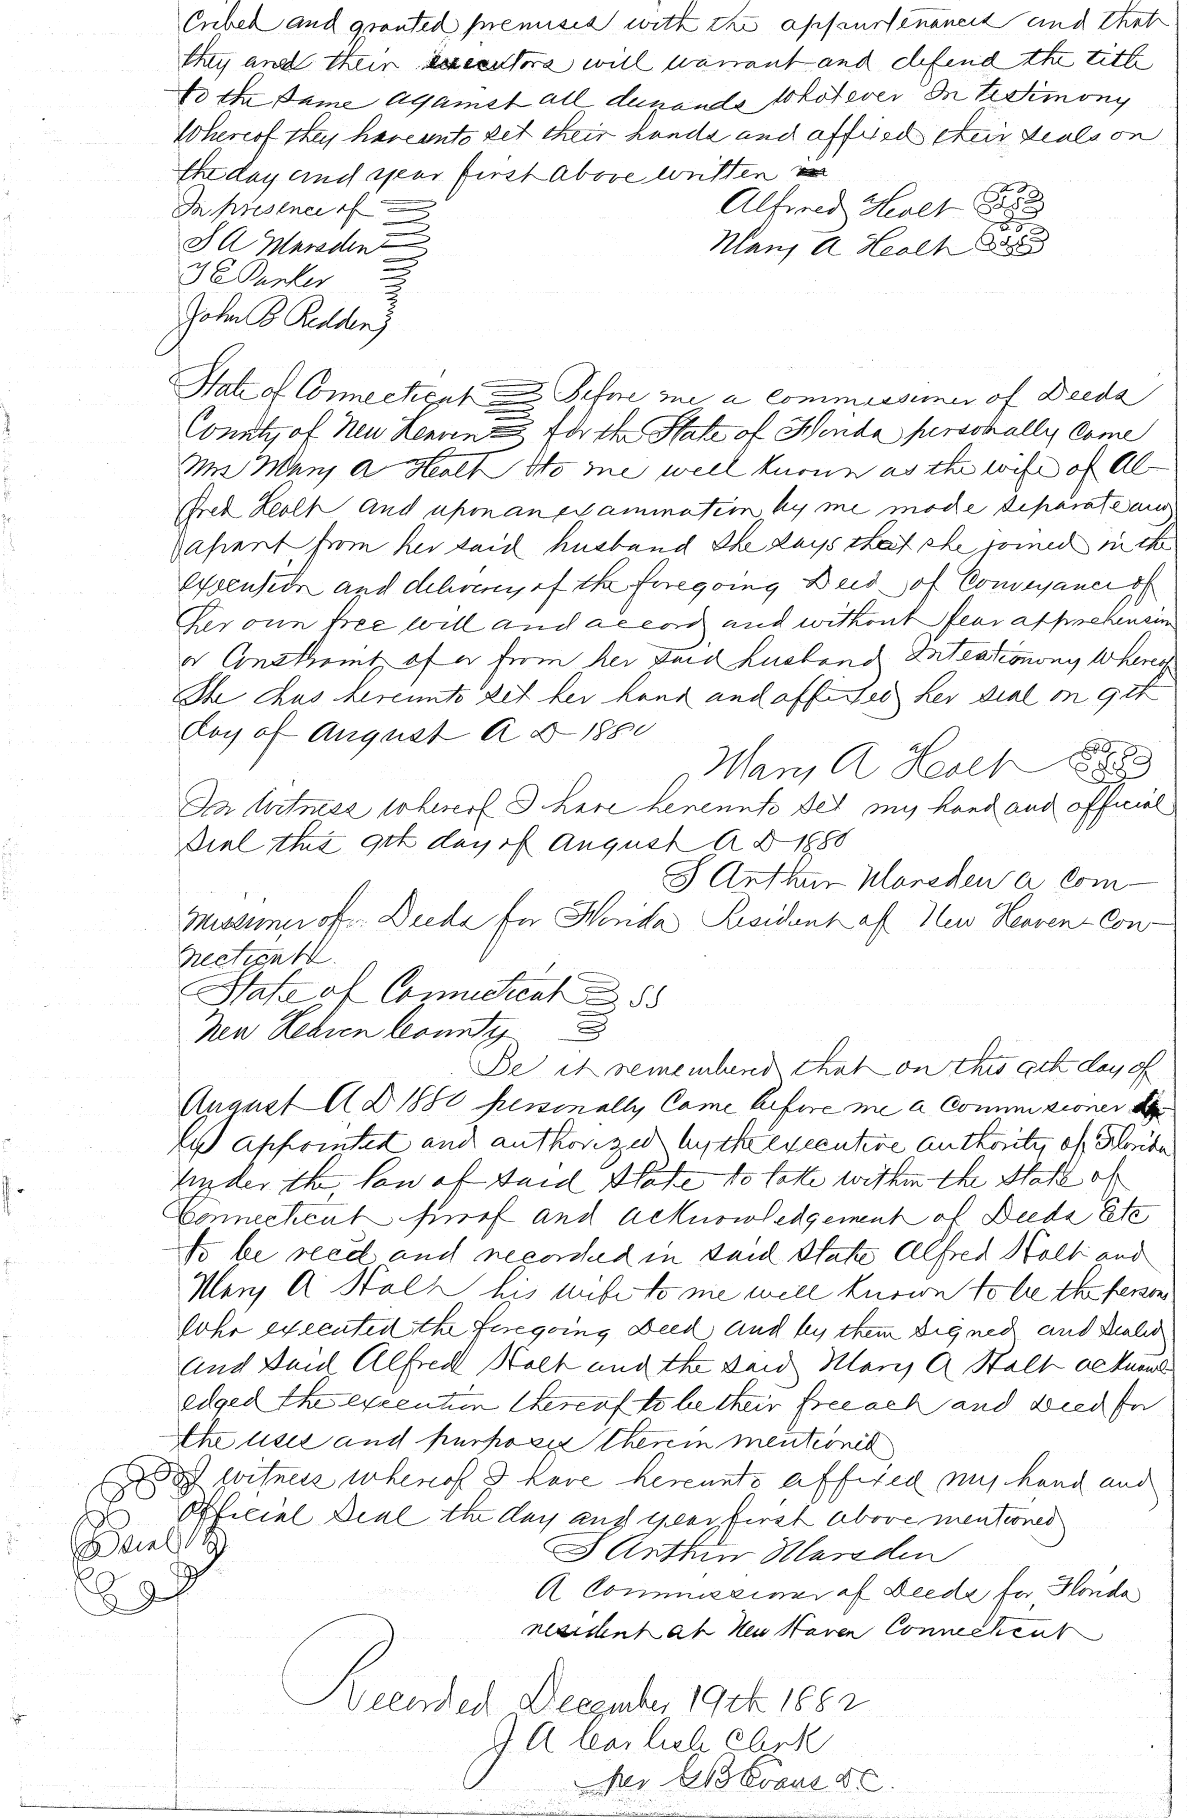 cribed and granted premises with the appurtenances and that
they and their executors will warrant and defend the title
to the same against all demands whatever In testimony
Whereof they hereunto set their hands and affixed their seals on
the day and year first above written
In presence of
S A Marsden
J E Parker
John B Redden
Alfred Holt
Mary A Holt
State of Connecticut Before me a commissioner of Deeds
County of New Heaven for the State of Florida personally Come
Mrs Mary A Holt to me well known as the wife of Al-
fred Holt and upon an examination by me made separate and
apart from her said husband She says that she joined in the
execution and delivery of the foregoing Deed of Conveyance of
her own free will and accord and without fear apprehension
or Constraint of or from her said husband Intestimony Whereof
She has hereunto set her hand and affixed her seal on 9th
day of August A D 1880
Mary A Holt
In Witness whereof I have hereunto set my hand and official
Seal this 9th day of August A D 1880
S Arthur Marsden a Com-
missioner of Deeds for Florida Resident of New Heaven Con-
necticut
State of Connecticut SS
New Heaven County
Be it remembered that on this 9th day of
August A D 1880 personally Came before me a Commissioner du
ly appointed and authorized by the executive authority of Florida
under the law of said State to take within the State of
Connecticut proof and acknowledgement of Deeds Etc
to be recd and recorded in said State Alfred Holt and
Mary A Holt his wife to me well known to be the persons
who executed the foregoing Deed and by them Signed and Sealed
and said Alfred Holt and the said Mary A Holt acknowl
edged the execution thereof to be their free act and Deed for
the uses and purposes therein mentioned
In witness whereof I have hereunto affixed my hand and
Official Seal the day and year first above mentioned
Seal
S Arthur Marsden
A Commissioner of Deeds for Florida
resident at New Haven Connecticut
Recorded December 19th 1882
J A Clerk
Per Evans D.C.